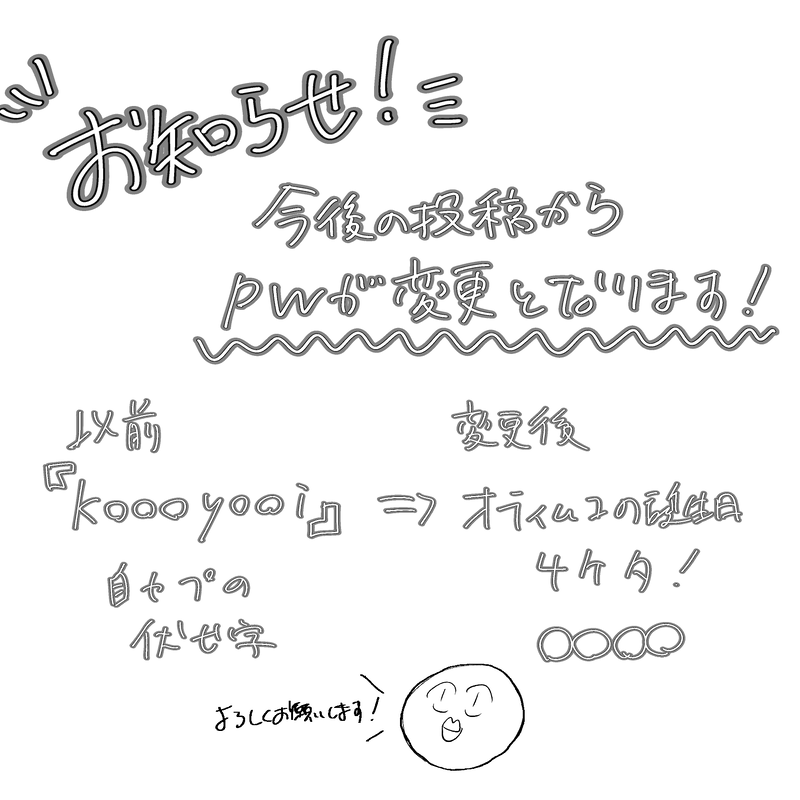 お知らせ!
今後の投稿から
pwが変更となります!
以前
『koooyooi』
自セプの
伏せ字
⇒
変更後
オライムユの誕生日
4ケタ!
○○○○
よろしくお願いします!